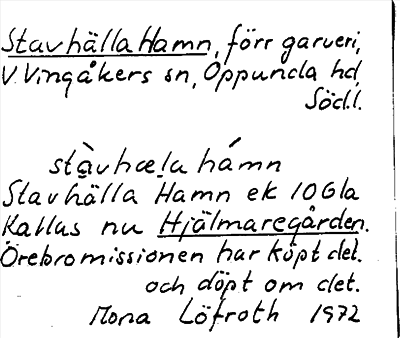 Stavhälla Hamn, förr garveri,
V. Vingåkers sn, Oppunda hd,
Södl.
stàvhæla hámn
Stavhälla Hamn ek 106la
Kallas nu Hjälmaregården.
Örebromissionen har köpt det.
och döpt om det.
Mona Löfroth 1972